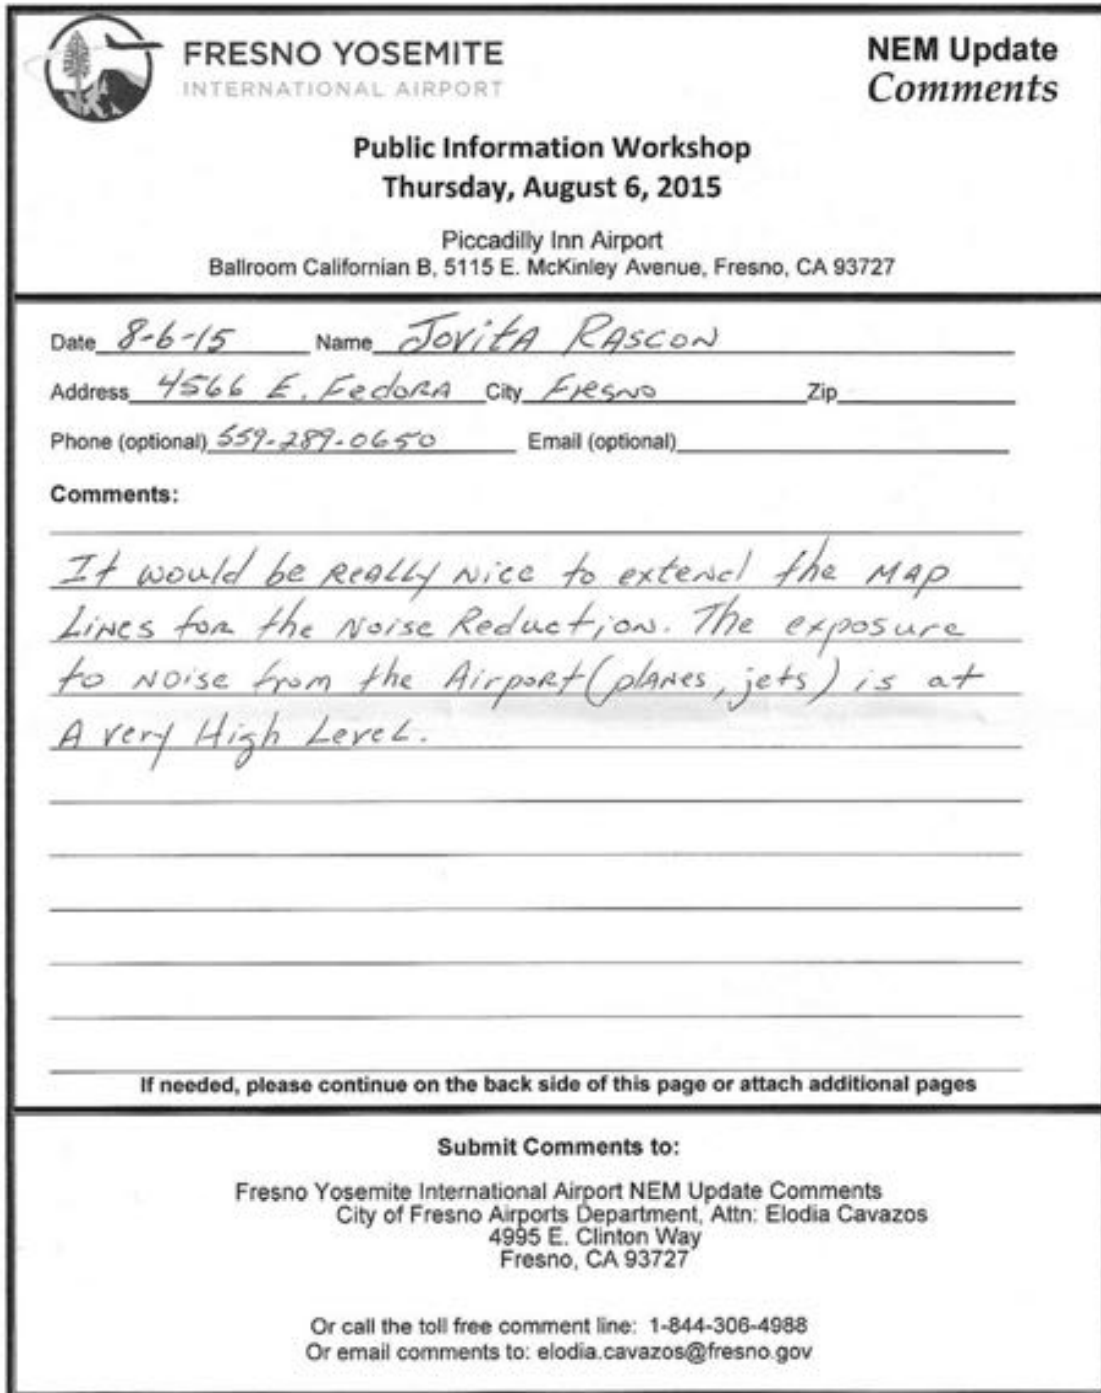 FRESNO YOSEMITE
INTERNATIONAL AIRPORT
NEM Update
Comments
Public Information Workshop
Thursday, August 6, 2015
Piccadilly Inn Airport
Ballroom Californian B, 5115 E. McKinley Avenue, Fresno, CA 93727
Date 8-6-15 Name Jovita Rascon
Address 4566 E. Fedora City Fresno Zip
Phone (optional) 559-289-0650 Email (optional)
Comments:
It would be Really Nice to extend the MAP
Lines for the Noise Reduction. The exposure
to Noise from the Airport (planes, jets) is at
A very High Level.
If needed, please continue on the back side of this page or attach additional pages
Submit Comments to:
Fresno Yosemite International Airport NEM Update Comments
City of Fresno Airports Department, Attn: Elodia Cavazos
4995 E. Clinton Way
Fresno, CA 93727
Or call the toll free comment line: 1-844-306-4988
Or email comments to: elodia.cavazos@fresno.gov